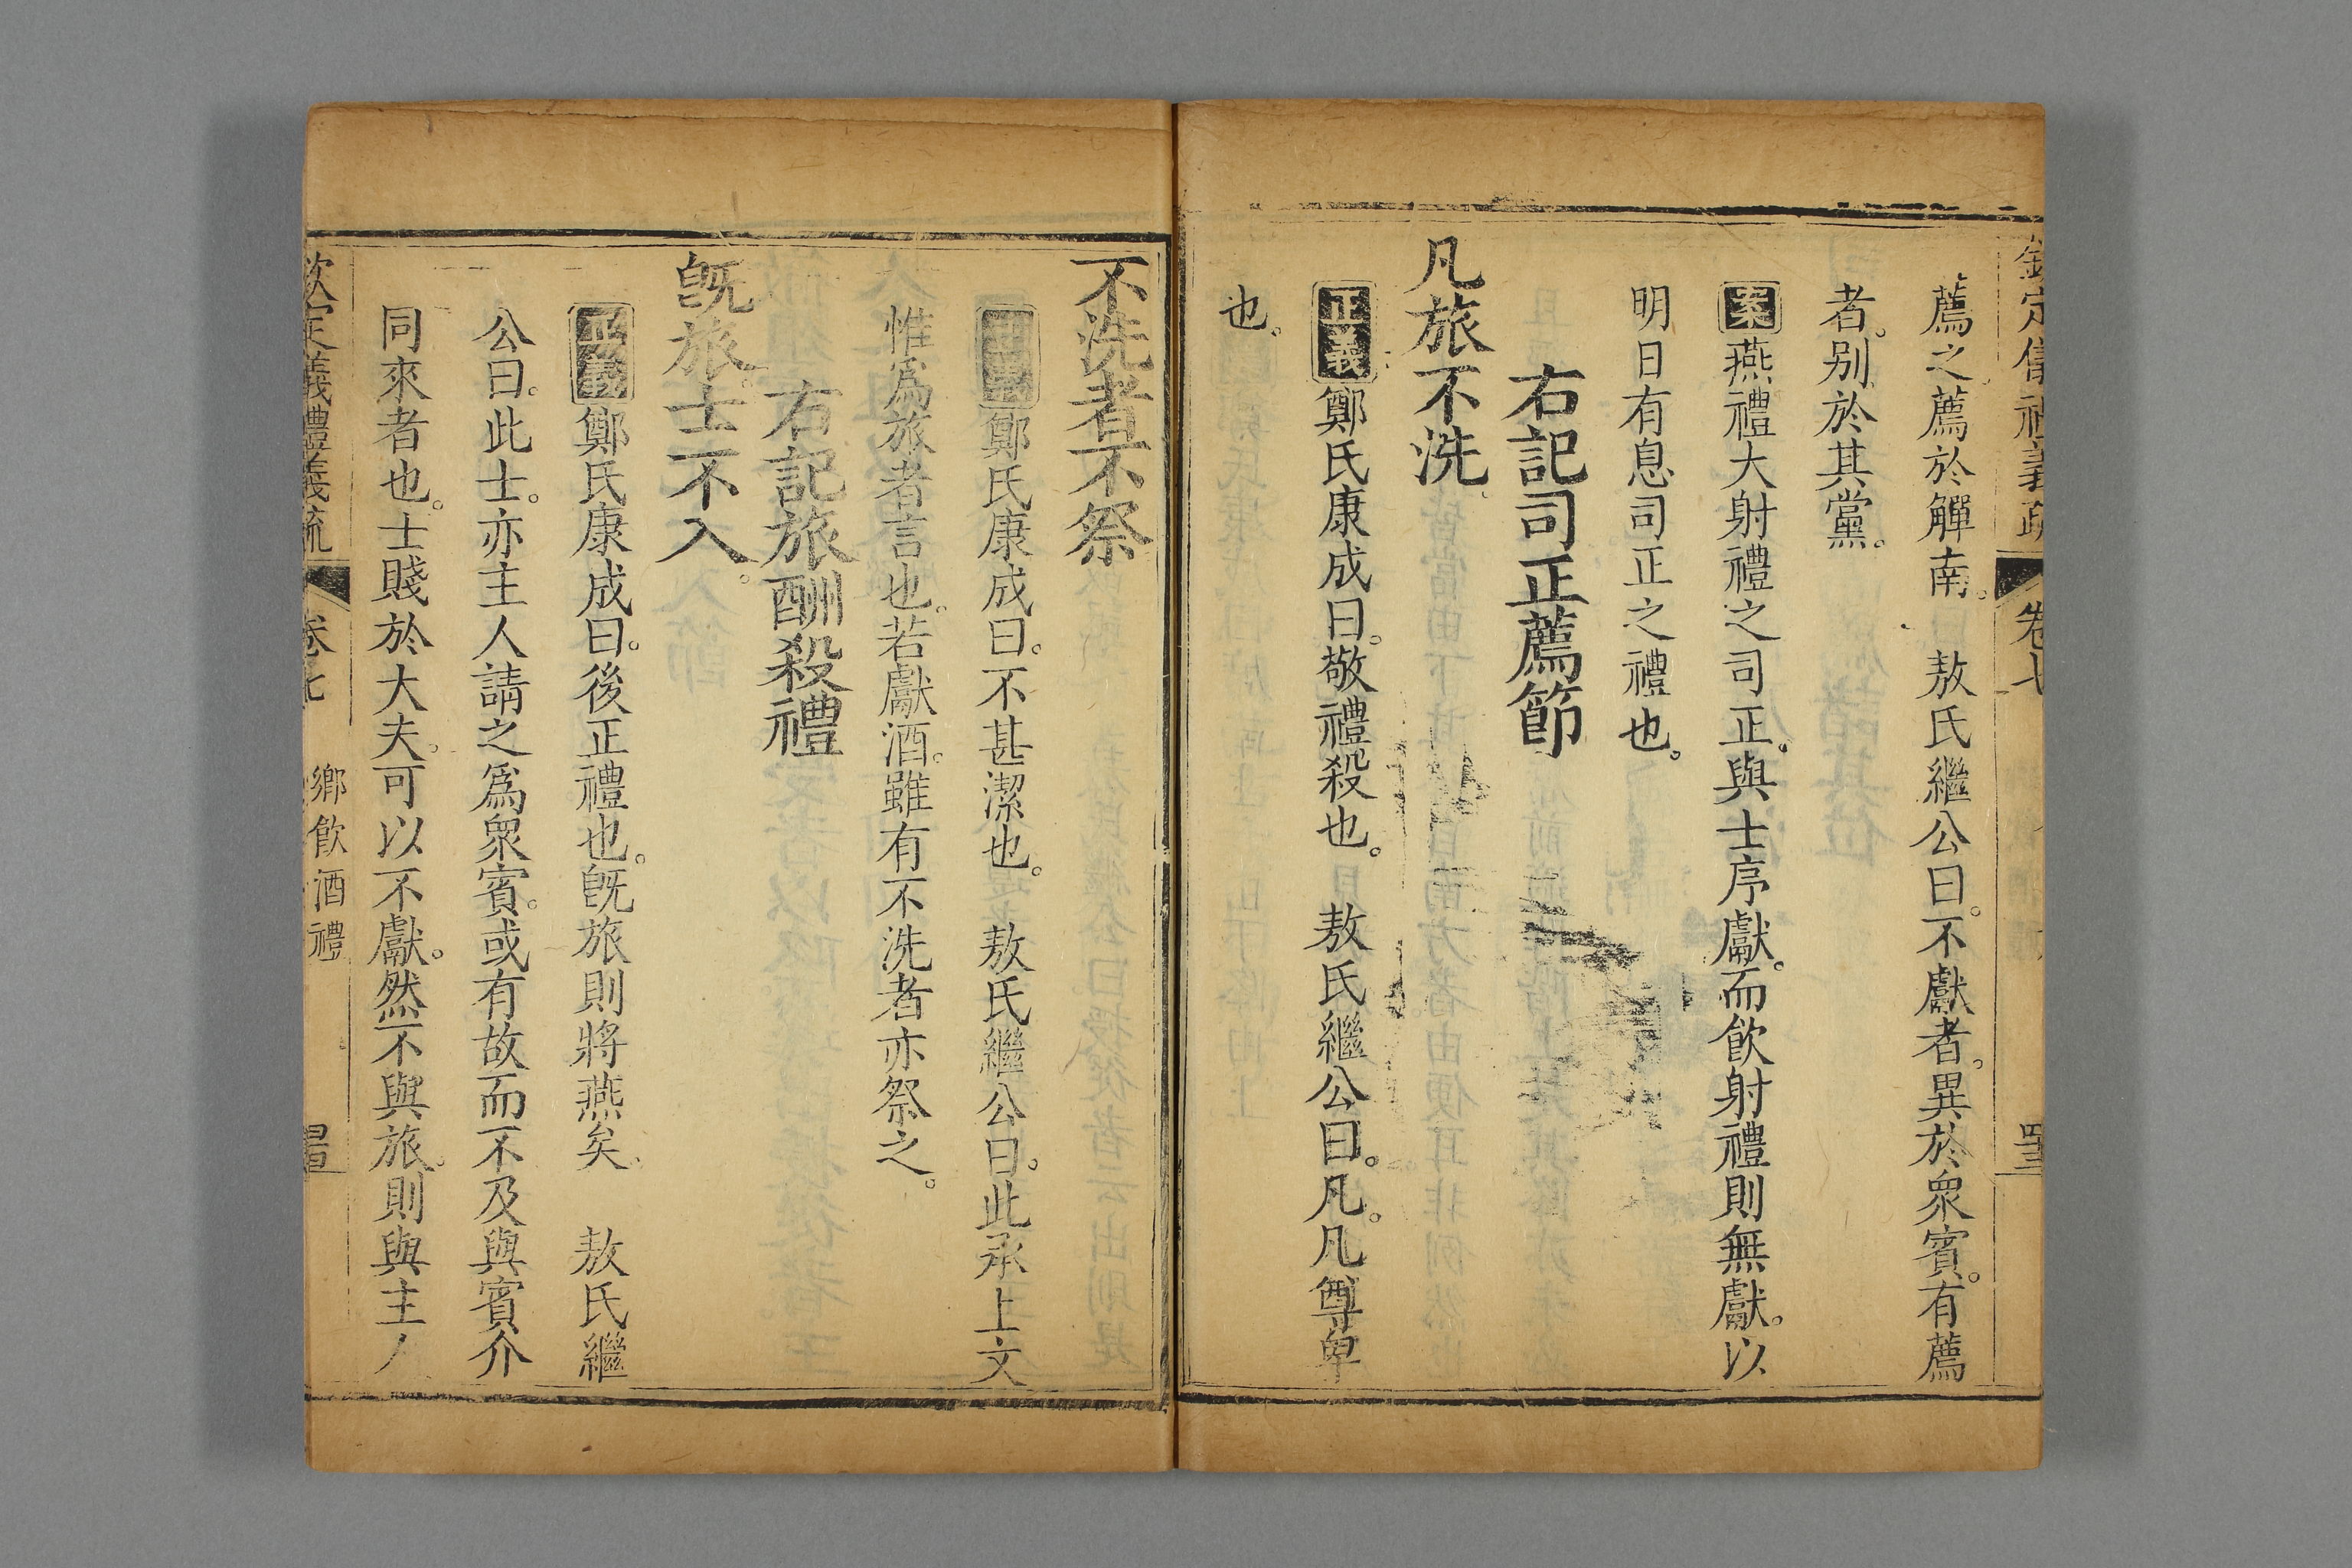 欽定儀禮義疏 卷七 罒三
薦之薦於觶南。 敖氏繼公曰。不獻者。異於衆賓。有薦
者。别於其黨。
案燕禮大射禮之司正。與士序獻。而飲射禮則無獻。以
明日有息司正之禮也。
右記司正薦節
凡旅不洗。
正義鄭氏康成曰。敬禮殺也。 敖氏繼公曰。凡。凡尊卑
也。
不洗者不祭
正義鄭氏康成曰。不甚潔也。 敖氏繼公曰。此承上文
惟爲旅者言也。若獻酒。雖有不洗者亦祭之。
右記旅酬殺禮
旣旅。士不入。
正義鄭氏康成曰。後正禮也。旣旅則將燕矣。 敖氏繼
公曰。此士。亦主人請之爲衆賓。或有故而不及與賓介
同來者也。士賤於大夫。可以不獻。然不與旅。則與主人
欽定儀禮義疏 卷七 鄉飲酒禮